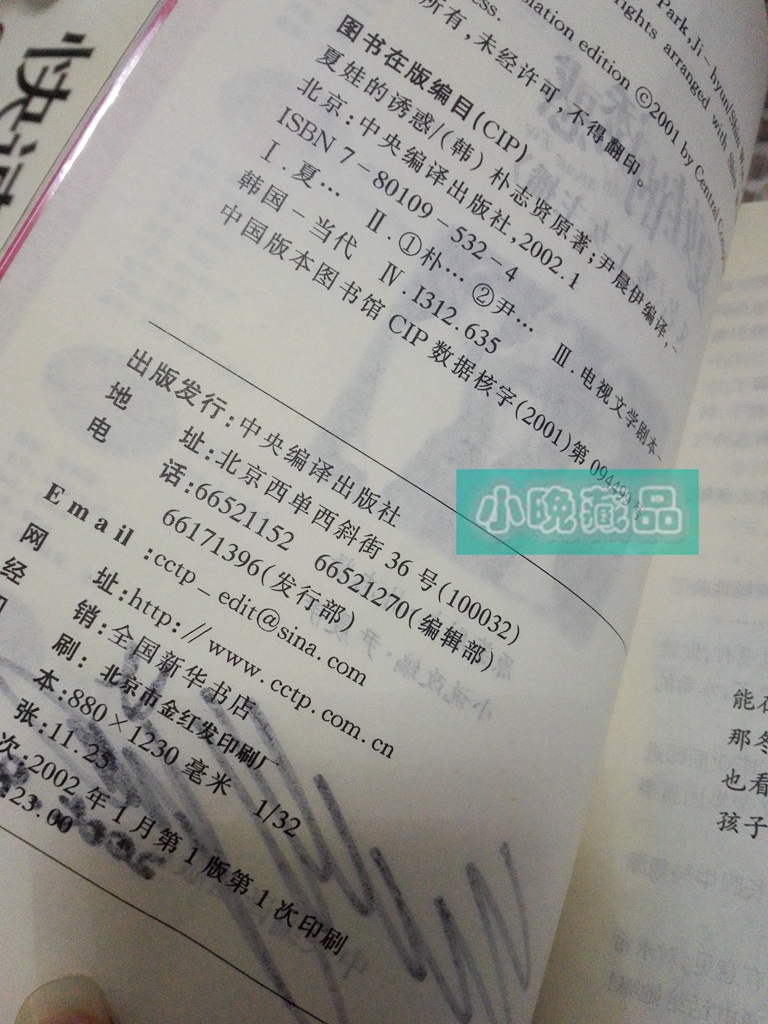 Park, Ji-hyun/
rights arranged with
ess.
lation edition ©2001 by Central
所有，未经许可，不得翻印。
图书在版编目(CIP)
夏娃的诱惑/(韩)朴志贤原著;尹晨伊编译，-
北京:中央编译出版社,2002.1
ISBN 7-80109-532-4
Ⅰ.夏… Ⅱ.①朴… ②尹… Ⅲ.电视文学剧本-
韩国-当代 Ⅳ.I312.635
中国版本图书馆 CIP 数据核字(2001)第 094493
出版发行:中央编译出版社
地 址:北京西单西斜街 36 号(100032)
电 话:66521152 66521270(编辑部)
66171396(发行部)
Email:cctp-edit@sina.com
网 址:http://www.cctp.com.cn
经 销:全国新华书店
刷:北京市金红发印刷厂
本:880×1230 毫米 1/32
张:11.25
次:2002 年 1 月第 1 版第 1 次印刷
:23.00
小晚藏品
能在
那冬
也看
孩子